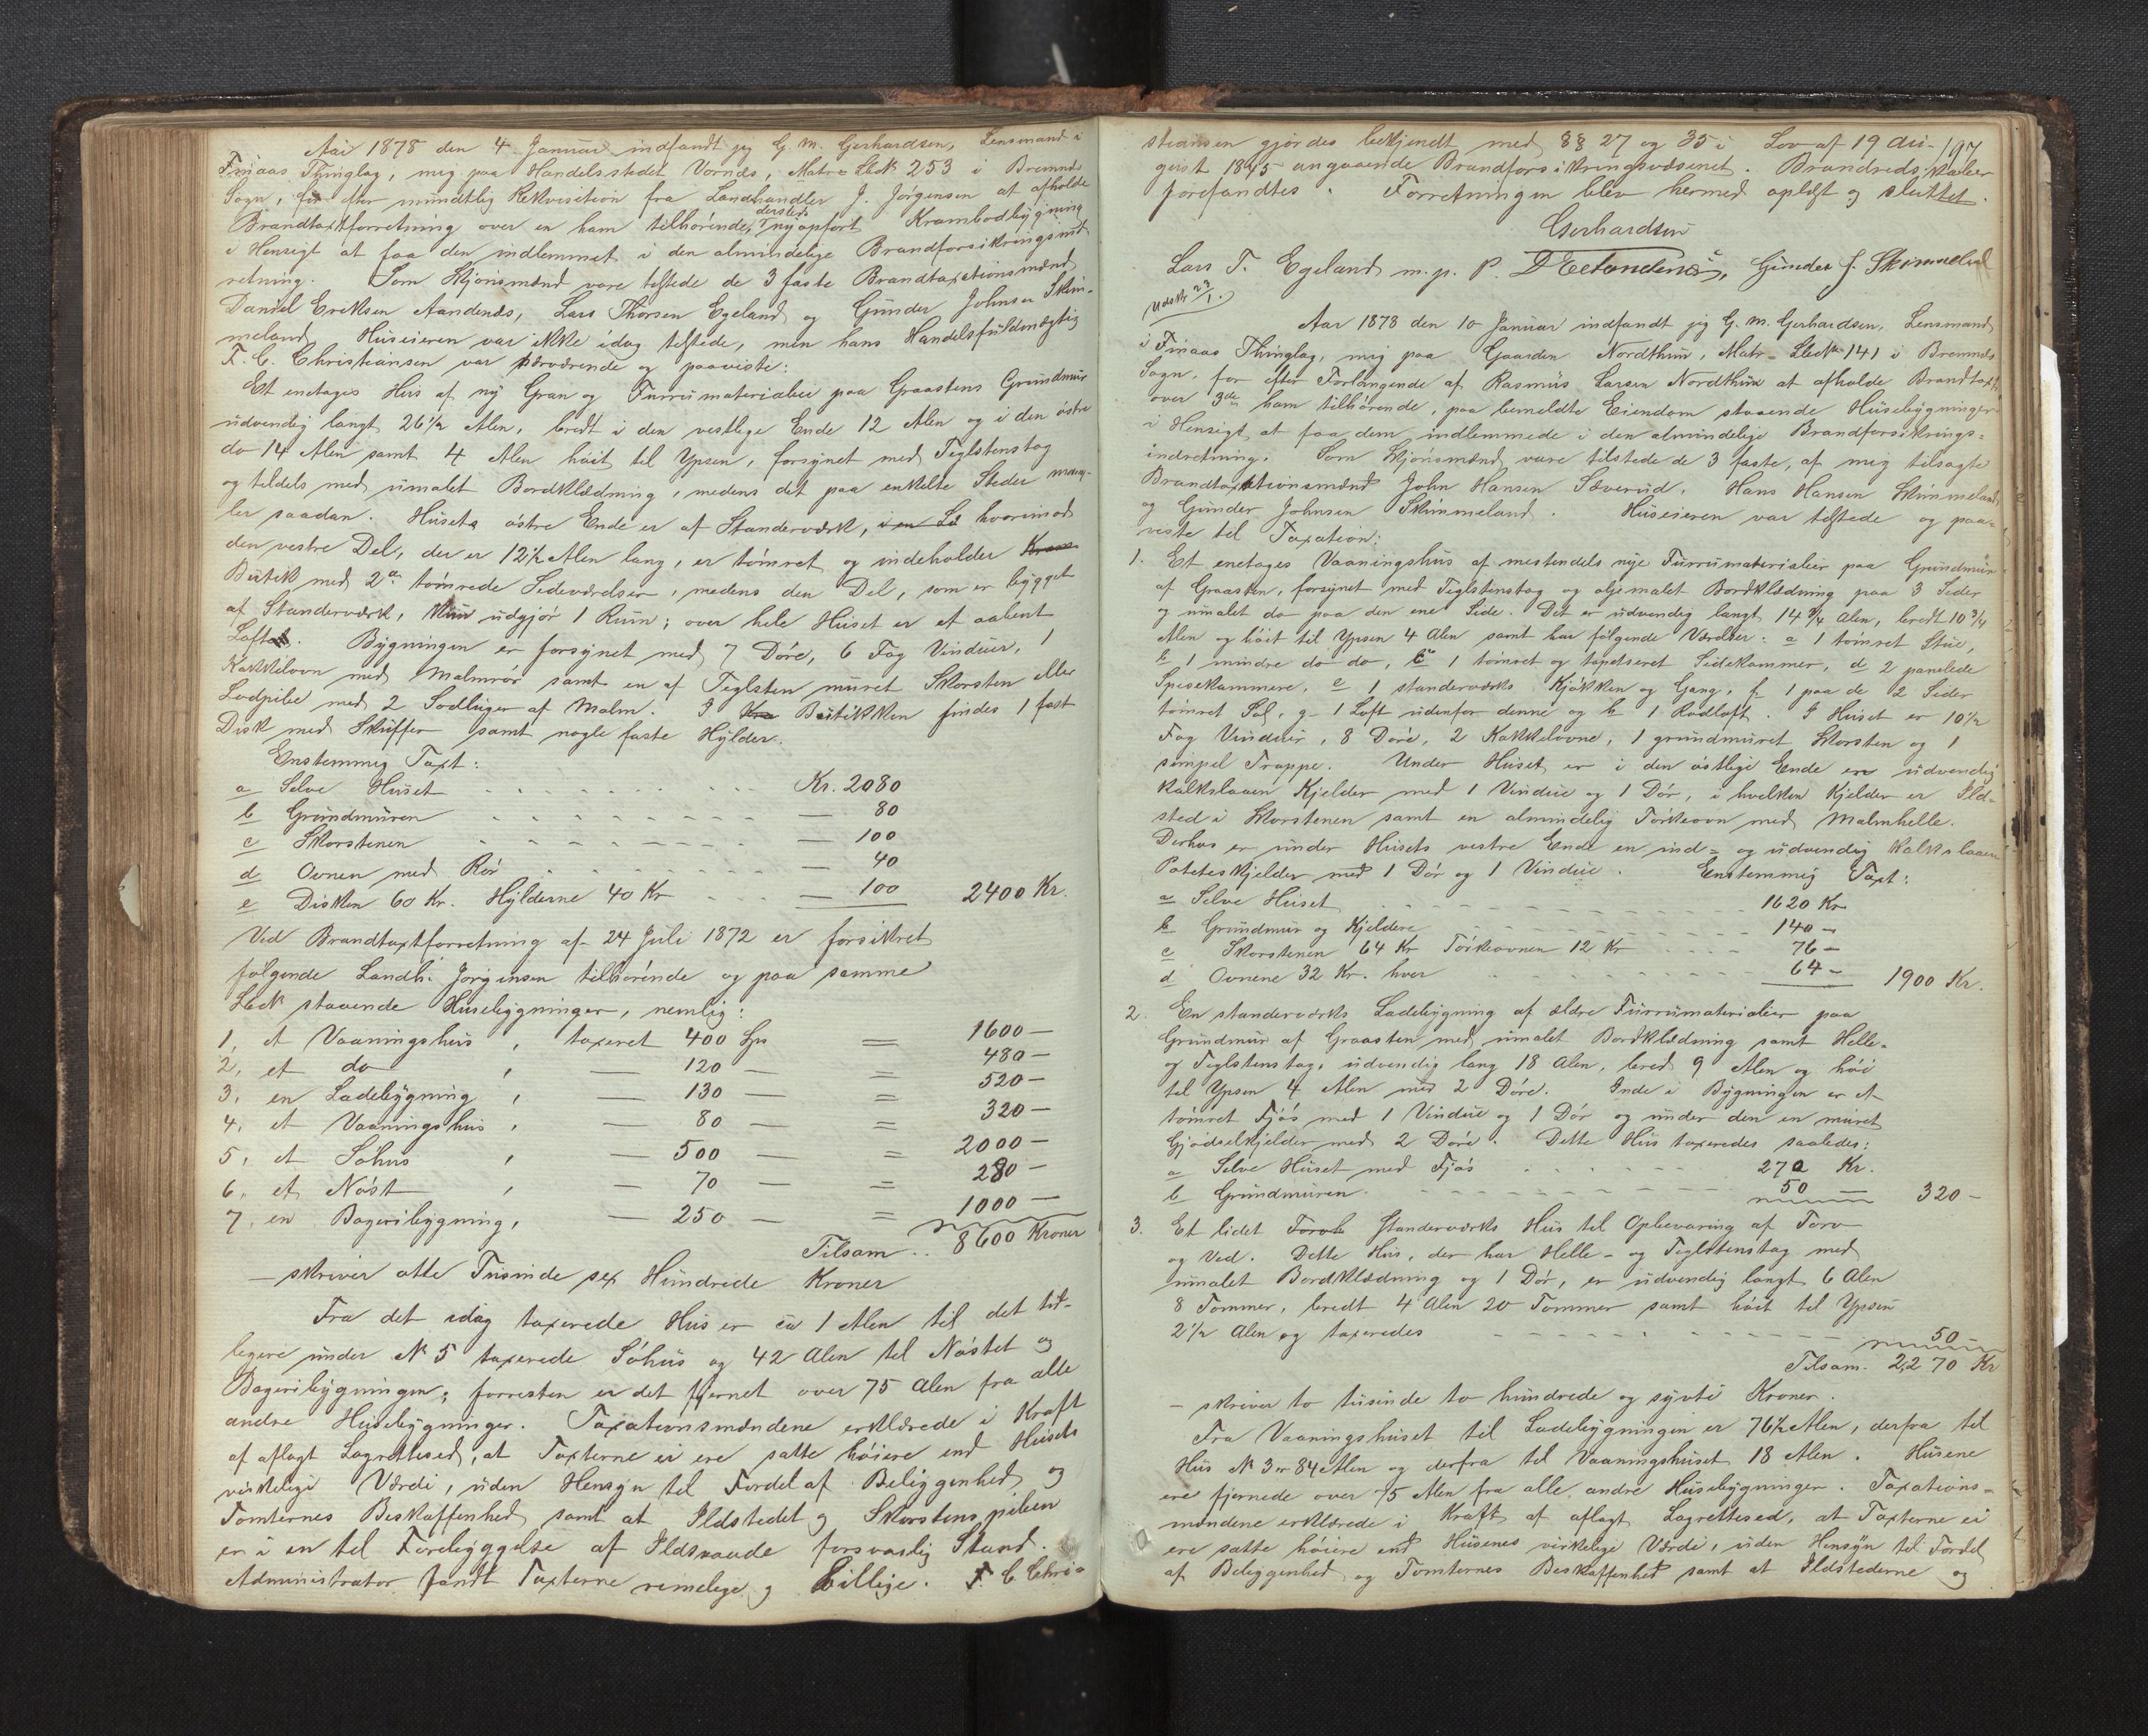 Aar 1878 den 4 Januar indfandt jeg G. M. Gerhardsen, Lensmand i
Finaas Thinglag, mig paa Handelsstedet Vornæs, Matr = Lbek 253 i Bremnæs
Sogn, for efter mundtlig Rekvisition fra Landhandler J. Jørgensen at afholde
Brandtaxtforretning over en ham tilhørende, dersteds nyopført Krambodbygning
i Hensigt at faa den indlemmet i den almindelige Brandforsikringsind-
retning. Som Skjønsmænd vare tilstede de 3 faste Brandtaxationsmænd
Daniel Eriksen Aandenæs, Lars Thorsen Egeland og Gunder Johnsen Skim-
meland. Huseieren var ikke idag tilstede, men hans Handelsfuldmægtig
F. C. Christiansen var nærværende og paaviste:
Et enetages Hus af ny Gran og Furrumaterialier paa Graastens Grundmur
udvendig langt 26 1/2 Alen, bredt i den vestlige Ende 12 Alen og i den østre
do 14 Alen samt 4 Alen høit til Ypsen, forsynet med Teglstenstag
og tildels med umalet Bordklædning, medens det paa enkelte Steder mang-
ler saadan. Husets østre Ende er af Standerværk, i en La hvorimod
den vestre Del, der er 12 1/2 Alen lang, er tømret og indeholder Kram
Butik med 2de tømrede Sideværelser, medens den Del, som er bygget
af Standerværk, kun udgjør 1 Rum; over hele Huset er et aabent
Loft. Bygningen er forsynet med 7 Døre, 6 Fag Vinduer, 1
Kakkelovn med Malmrør samt en af Teglsten muret Skorsten eller
Lodpibe med 2 Sodluger af Malm. I Kra Butikken findes 1 fast
Disk med Skuffer samt nogle faste Hylder.
Enstemmig Taxt:
a Selve Huset Kr. 2080
b Grundmuren — 80
c Skorstenen — 100
d Ovnen med Rør — 40
e Disken 60 Kr. Hylderne 40 Kr — 100 2400 Kr.
Ved Brandtaxtforretning af 24 Juli 1872 er forsikret
følgende Landh. Jørgensen tilhørende og paa samme
Lbek staaende Husebygninger, nemlig:
1, et Vaaningshus, taxeret 400 Spd = 1600 —
2, et do , — 120 — = 480 —
3, en Ladebygning , — 130 — = 520 —
4, et Vaaningshus , — 80 — = 320 —
5, et Søhus , — 500 — = 2000 —
6, et Nøst , — 70 — = 280 —
7, en Bageribygning, — 250 — = 1000 —
Tilsam .. 8600 Kroner
— skriver otte Tusinde sex Hundrede Kroner
Fra det idag taxerede Hus er ca 1 Alen til det tid-
ligere under № 5 taxerede Søhus og 42 Alen til Nøstet og
Bageribygningen; forresten er det fjernet over 75 Alen fra alle
andre Husebygninger. Taxationsmændene erklærede i Kraft
af aflagt Lagrettesed, at Taxterne ei ere satte høiere end Husets
virkelige Værdi, uden Hensyn til Fordel af Beliggenhed og
Tomternes Beskaffenhed samt at Ildstedet og Skorstenspiben
er i en til Forebyggelse af Ildsvaade forsvarlig Stand.
Administrator fandt Taxterne rimelige og billige. F C Chri-
197
stiansen gjordes bekjendt med §§ 27 og 35 i Lov af 19 Au-
gust 1845 angaaende Brandforsikringsvæsenet. Brandredskaber
forefandtes. Forretningen blev hermed oplæst og sluttet.
Gerhardsen
Lars T. Egeland m. p. P. D E Aandenæs, Gunder J. Skimmeland
Udsk 23/1.
Aar 1878 den 10 Januar indfandt jeg G. M. Gerhardsen, Lensmand
i Finaas Thinglag, mig paa Gaarden Nordthun, Matr = Lbek 141 i Bremnæs
Sogn, for efter Forlangende af Rasmus Larsen Nordthun at afholde Brandtaxt
over 3de ham tilhørende, paa bemeldte Eiendom staaende Husebygninger
i Hensigt at faa dem indlemmede i den almindelige Brandforsikrings=
indretning. Som Skjønsmænd vare tilstede de 3 faste, af mig tilsagte
Brandtaxationsmænd John Hansen Sæverud, Hans Hansen Skimmeland
og Gunder Johnsen Skimmeland. Huseieren var tilstede og paa=
viste til Taxation:
1. Et enetages Vaaningshus af mestendels nye Furrumaterialier paa Grundmur
af Graasten, forsynet med Teglstenstag og oljemalet Bordklædning paa 3 Sider
og umalet do paa den ene Side. Det er udvendig langt 14 3/4 Alen, bredt 10 3/4
Alen og høit til Ypsen 4 Alen samt har følgende Værelser: a 1 tømret Stue,
b 1 mindre do do, c 1 tømret og tapetseret Sidekammer, d 2 panelede
Spisekammere, e 1 standerværks Kjøkken og Gang, f 1 paa de 2 Sider
tømret Sal, g 1 Loft udenfor denne og h 1 Rødloft. I Huset er 10 1/2
Fag Vinduer, 8 Døre, 2 Kakkelovne, 1 grundmuret Skorsten og 1
simpel Trappe. Under Huset er i den østlige Ende en udvendig
kalkslaaen Kjelder med 1 Vindue og 1 Dør, i hvilken Kjelder er Ild=
sted i Skorstenen samt en almindelig Tørkeovn med Malmhelle.
Derhos er under Husets vestre Ende en ind= og udvendig kalkslaaen
Poteteskjelder med 1 Dør og 1 Vindue. Enstemmig Taxt:
a Selve Huset 1620 Kr
b Grundmur og Kjeldere 140 —
c Skorstenen 64 Kr Tørkeovnen 12 Kr 76 —
d Ovnene 32 Kr. hver 64 — 1900 Kr.
2. En standerværks Ladebygning af ældre Furrumaterialier paa
Grundmur af Graasten med umalet Bordklædning samt Helle-
og Teglstenstag, udvendig lang 18 Alen, bred 9 Alen og høi
til Ypsen 4 Alen med 2 Døre. Inde i Bygningen er et
tømret Fjøs med 1 Vindue og 1 Dør og under den en muret
Gjødselkjelder med 2 Døre. Dette Hus taxeredes saaledes:
a Selve Huset med Fjøs 270 Kr.
b Grundmuren 50 — 320 —
3. Et lidet Standerværks Hus til Opbevaring af Torv
og Ved. Dette Hus, der har Helle- og Teglstenstag med
umalet Bordklædning og 1 Dør, er udvendig langt 6 Alen
8 Tommer, bredt 4 Alen 20 Tommer samt høit til Ypsen
2 1/2 Alen og taxeredes 50 —
Tilsam. 2,270 Kr
— skriver to tusinde to hundrede og sytti Kroner.
Fra Vaaningshuset til Ladebygningen er 76 1/2 Alen, derfra til
Hus № 3 er 84 Alen og derfra til Vaaningshuset 18 Alen. Husene
ere fjernede over 75 Alen fra alle andre Husebygninger. Taxations=
mændene erklærede i Kraft af aflagt Lagrettesed, at Taxterne ei
ere satte høiere end Husenes virkelige Værdi, uden Hensyn til Fordel
af Beliggenhed og Tomternes Beskaffenhed samt at Ildstederne og